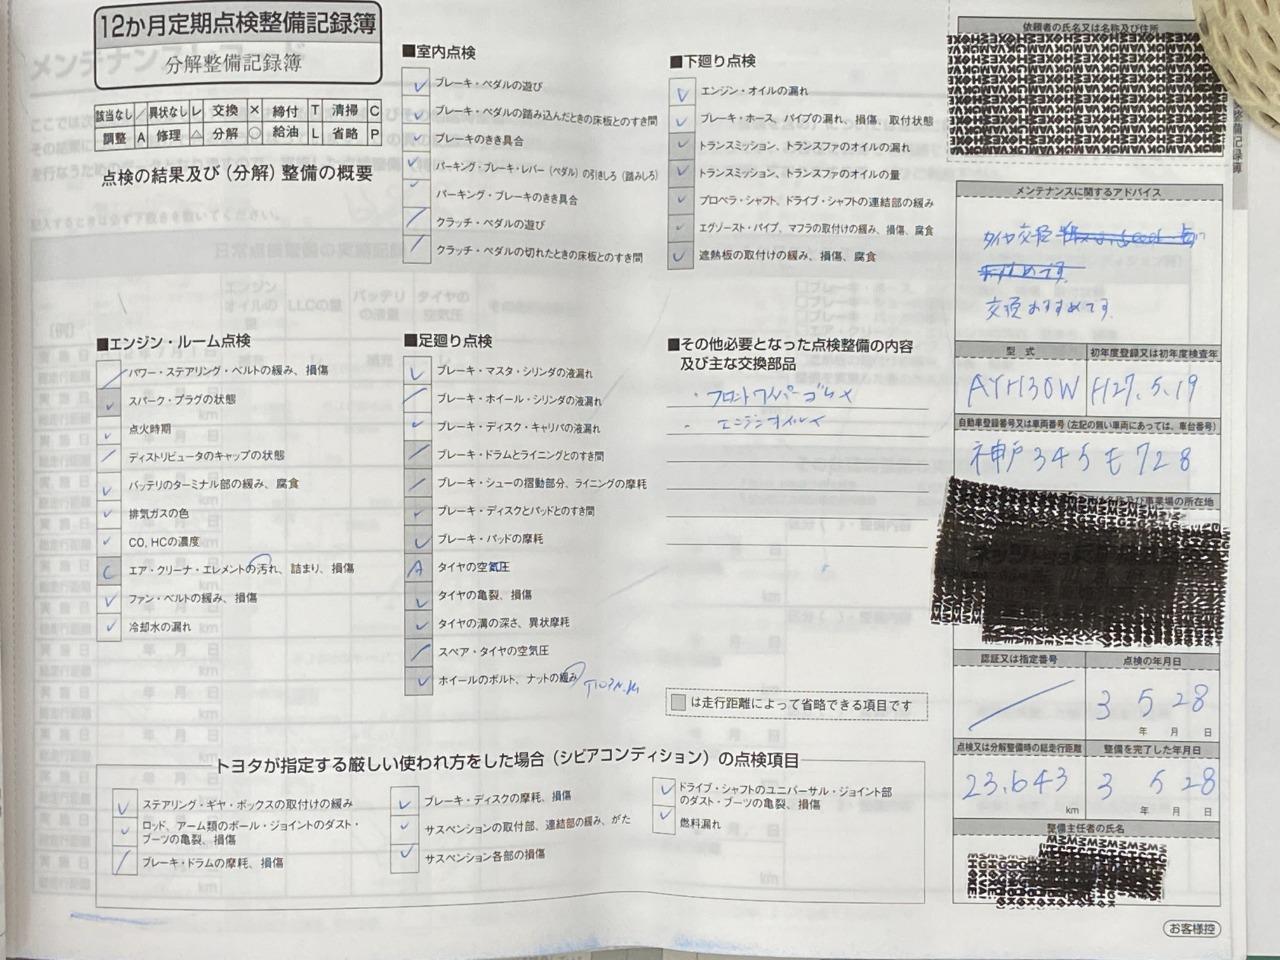 12か月定期点検整備記録簿
分解整備記録簿
該当なし / 異状なし レ 交換 × 締付 T 清掃 C
調整 A 修理 △ 分解 ○ 給油 L 省略 P
点検の結果及び（分解）整備の概要
■室内点検
レ ブレーキ・ペダルの遊び
レ ブレーキ・ペダルの踏み込んだときの床板とのすき間
レ ブレーキのきき具合
レ パーキング・ブレーキ・レバー（ペダル）の引きしろ（踏みしろ）
レ パーキング・ブレーキのきき具合
/ クラッチ・ペダルの遊び
/ クラッチ・ペダルの切れたときの床板とのすき間
■下廻り点検
レ エンジン・オイルの漏れ
レ ブレーキ・ホース、パイプの漏れ、損傷、取付状態
レ トランスミッション、トランスファのオイルの漏れ
レ トランスミッション、トランスファのオイルの量
レ プロペラ・シャフト、ドライブ・シャフトの連結部の緩み
レ エグゾースト・パイプ、マフラの取付けの緩み、損傷、腐食
レ 遮熱板の取付けの緩み、損傷、腐食
■エンジン・ルーム点検
/ パワー・ステアリング・ベルトの緩み、損傷
レ スパーク・プラグの状態
レ 点火時期
/ ディストリビュータのキャップの状態
レ バッテリのターミナル部の緩み、腐食
レ 排気ガスの色
レ CO, HCの濃度
C エア・クリーナ・エレメントの汚れ、詰まり、損傷
レ ファン・ベルトの緩み、損傷
レ 冷却水の漏れ
■足廻り点検
レ ブレーキ・マスタ・シリンダの液漏れ
/ ブレーキ・ホイール・シリンダの液漏れ
レ ブレーキ・ディスク・キャリパの液漏れ
/ ブレーキ・ドラムとライニングとのすき間
/ ブレーキ・シューの摺動部分、ライニングの摩耗
レ ブレーキ・ディスクとパッドとのすき間
レ ブレーキ・パッドの摩耗
A タイヤの空気圧
レ タイヤの亀裂、損傷
レ タイヤの溝の深さ、異状摩耗
/ スペア・タイヤの空気圧
レ ホイールのボルト、ナットの緩み
■その他必要となった点検整備の内容
及び主な交換部品
・フロントワイパーゴム×
・エンジンオイル×
は走行距離によって省略できる項目です
トヨタが指定する厳しい使われ方をした場合（シビアコンディション）の点検項目
レ ステアリング・ギヤ・ボックスの取付けの緩み
レ ロッド、アーム類のボール・ジョイントのダスト・
ブーツの亀裂、損傷
/ ブレーキ・ドラムの摩耗、損傷
レ ブレーキ・ディスクの摩耗、損傷
レ サスペンションの取付部、連結部の緩み、がた
レ サスペンション各部の損傷
レ ドライブ・シャフトのユニバーサル・ジョイント部
のダスト・ブーツの亀裂、損傷
レ 燃料漏れ
依頼者の氏名又は名称及び住所
メンテナンスに関するアドバイス
タイヤ交換
交換おすすめです。
型式 初年度登録又は初年度検査年
AYH30W H27.5.19
自動車登録番号又は車両番号（左記の無い車両にあっては、車台番号）
神戸 345 モ 728
名称及び事業場の所在地
認証又は指定番号 点検の年月日
/ 3 5 28
年 月 日
点検又は分解整備時の総走行距離 整備を完了した年月日
23,643 km 3 5 28
年 月 日
整備主任者の氏名
お客様控